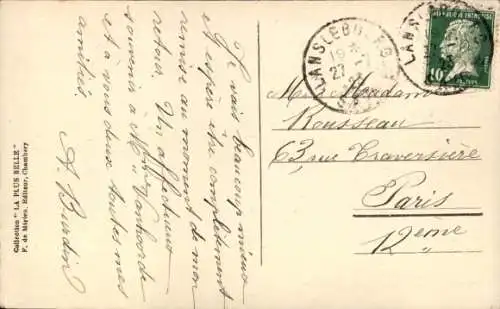 Je vais beaucoup mieux
et espère être complètement
remise au moment de mon
retour. Un affectueux
souvenir à Mme Vanhoorde
et à vous deux toutes mes
amitiés.
A. Burdin
Collection "LA PLUS BELLE"
F. de Mérien, Editeur, Chambéry
LANSLEBOURG
19
27 - 7
LANSLEB
10
M et Madame
Rousseau
63, rue Traversière
Paris
12ème